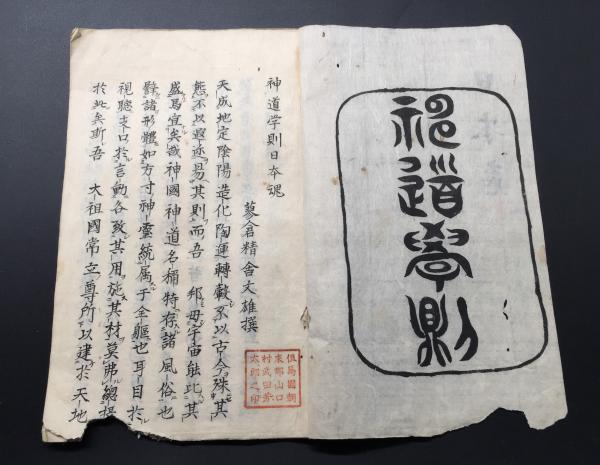 神道學則
神道学則日本魂
蓼倉精舎文雄撰
天成地定陰陽造化陶運轉不以古今殊其
態不以遐迩易其則而吾 邦毋宇宙能比其
盛焉宜矣哉神國神道名稱特存諸風俗也
譬諸形體如方寸神靈統属于全軀也耳目於
視聽支口於言動各致其用施其材莫弗總
於此矣斯吾 大祖國常立尊所以建於天地
但馬國朝
来郡山口
村武田
太郎之印